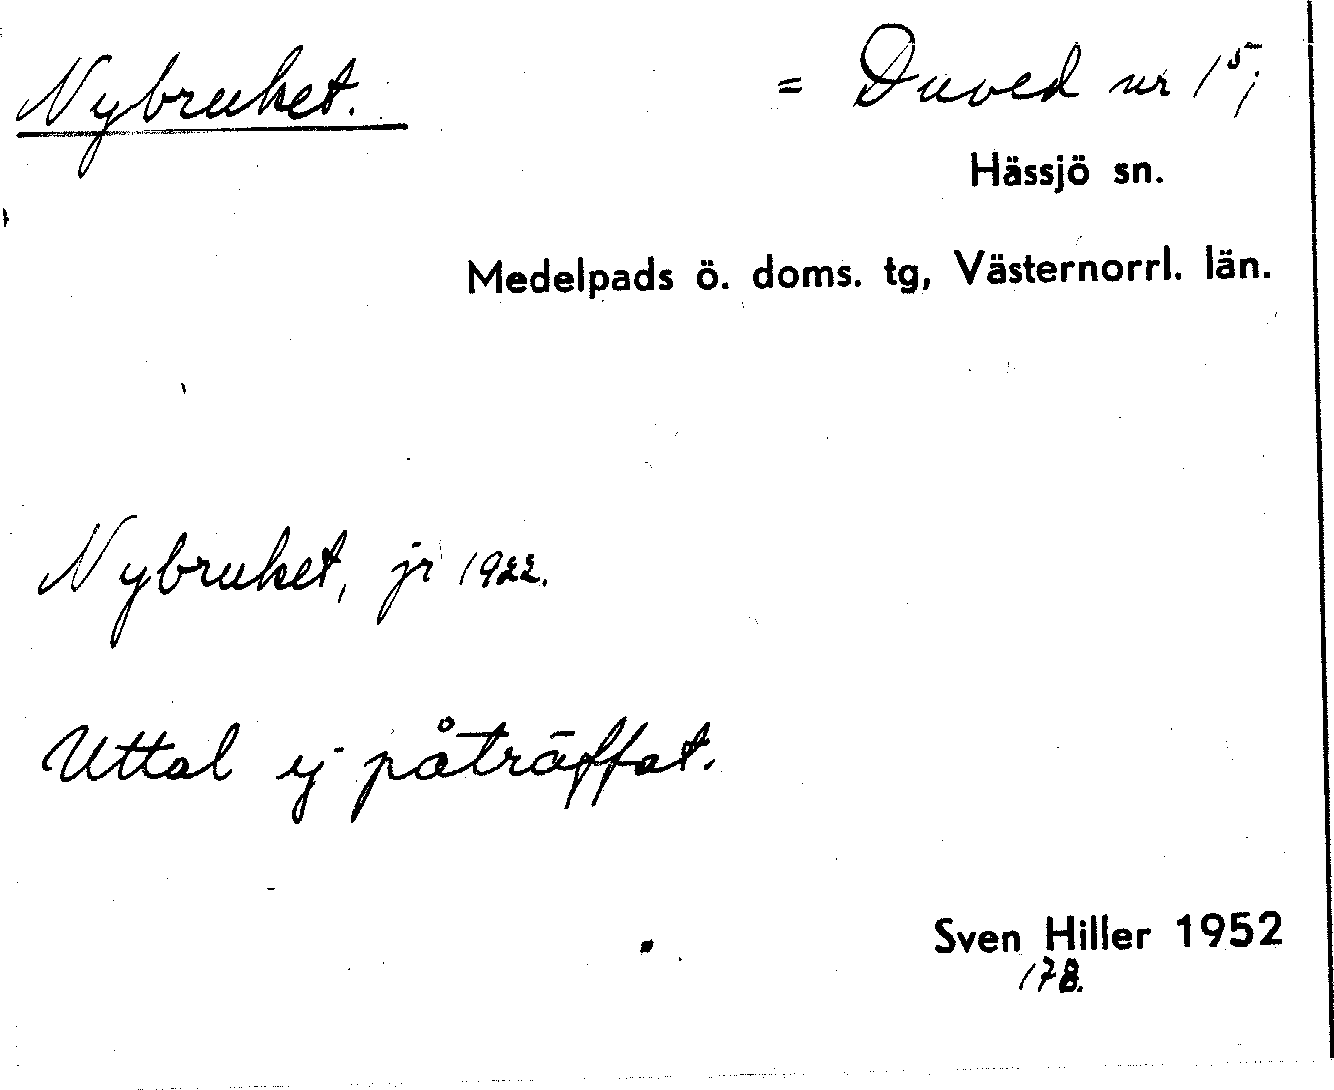 Nybruket. = Duved nr 1⁵;
Hässjö sn.
Medelpads ö. doms. tg, Västernorrl. län.
Nybruket, jr 1922.
Uttal ej påträffat.
Sven Hiller 1952
178.